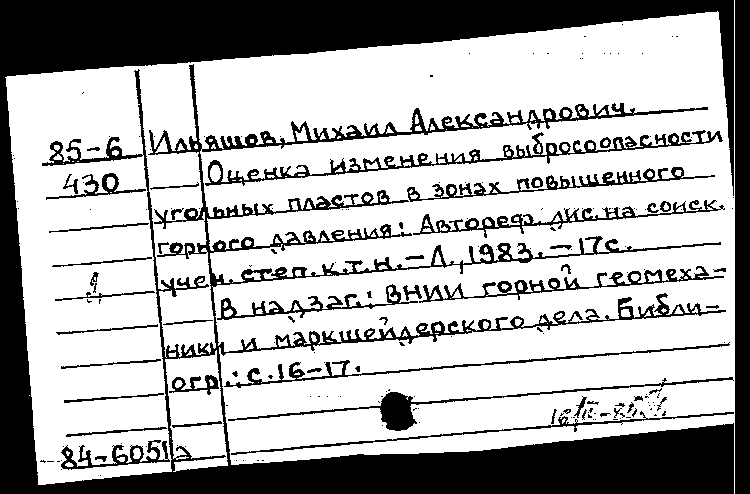 85-6 Ильяшов, Михаил Александрович.
430 Оценка изменения выбросоопасности
угольных пластов в зонах повышенного
горного давления: Автореф. дис. на соиск.
учен. степ. к.т.н. – Л., 1983. – 17с.
В надзаг.: ВНИИ горной геомеха-
ники и маркшейдерского дела. Библи-
огр.: с. 16-17.
84-6051а